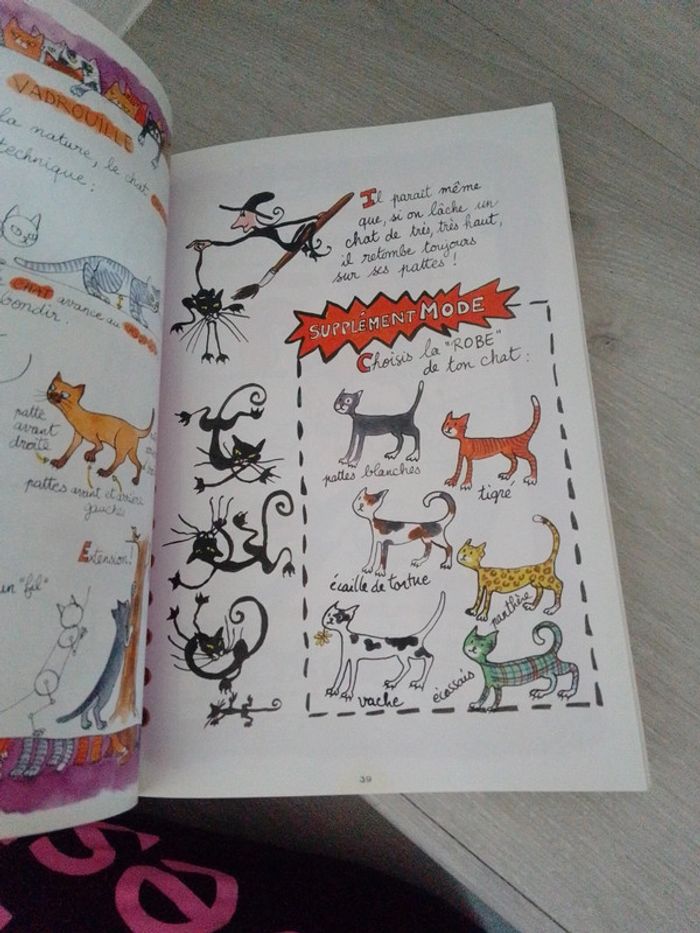 VADROUILLE
la nature, le chat
technique :
CHAT avance au
bondir.
patte
avant
droite
pattes avant et arrière
gauches
Extension !
un "fil"
Il paraît même
que, si on lâche un
chat de très, très haut,
il retombe toujours
sur ses pattes !
SUPPLÉMENT MODE
Choisis la "ROBE"
de ton chat :
pattes blanches
tigré
écaille de tortue
panthère
vache
écossais
39
se
e